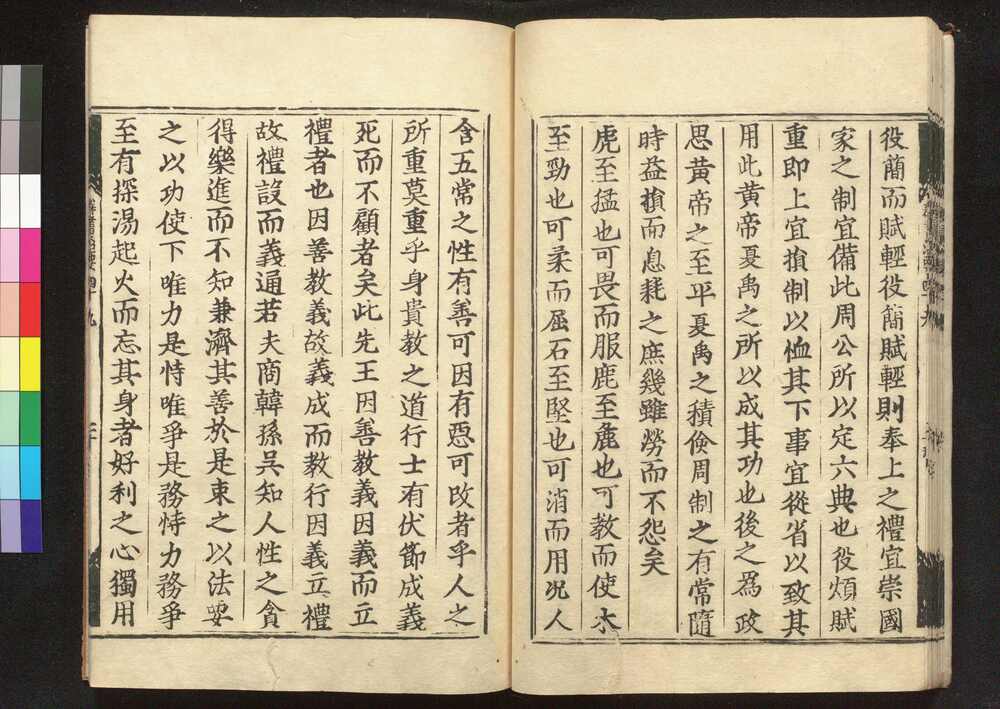 役簡而賦輕役簡賦輕則奉上之禮宜崇國
家之制宜備此周公所以定六典也役煩賦
重即上宜損制以恤其下事宜從省以致其
用此黃帝夏禹之所以成其功也後之為政
思黃帝之至平夏禹之積儉周制之有常隨
時益損而息耗之庶幾雖勞而不怨矣
虎至猛也可畏而服鹿至麁也可教而使木
至勁也可柔而屈石至堅也可消而用況人
含五常之性有善可因有惡可改者乎人之
所重莫重乎身貴教之道行士有伏節成義
死而不顧者矣此先王因善教義因義而立
禮者也因善教義故義成而教行因義立禮
故禮設而義通若夫商韓孫吳知人性之貪
得樂進而不知兼濟其善於是束之以法要
之以功使下唯力是恃唯爭是務恃力務爭
至有探湯赴火而忘其身者好利之心獨用
群書治要四十九